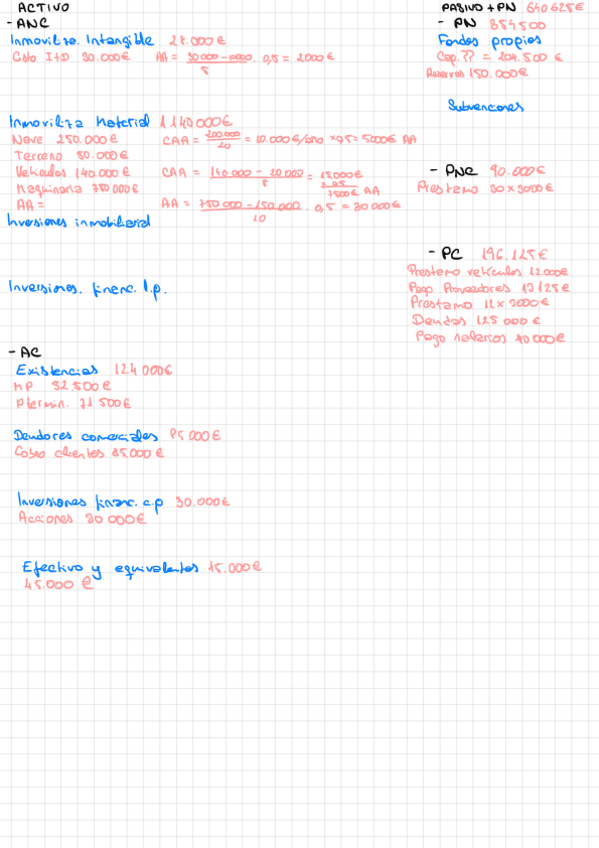 ACTIVO
- ANC
Inmoviliza. Intangible 28.000€
Csto I+D 30.000€ AA = 30 000 - 0000 / 5 · 0,5 = 2000€
Inmoviliza Material 1140000€
Nave 250.000€ CAA = 200.000 / 20 = 10.000€/año × 0,5 = 5000€ AA
Terreno 50.000€
Vehiculos 140 000€ CAA = 140 000 - 20 000 / 8 = 15000€ × 0,5 7500€ AA
Maquinaria 750 000€
AA = AA = 750 000 - 150.000 / 10 · 0,5 = 30 000€
Inversiones inmobiliaria
Inversiones. financ. l.p.
- AC
Existencias 124 000€
MP 52.500€
P termin. 71 500€
Deudores comerciales 85 000€
Cobro clientes 85.000€
Inversiones financ. c.p 30.000€
Acciones 30 000€
Efectivo y equivalentes 45.000€
45.000 €
PASIVO + PN 640 625€
- PN 854 500
Fondos propios
Cap. ?? = 204.500 €
Reservas 150.000€
Subvenciones
- PNC 90.000€
Prestamo 30 × 3000€
- PC 196.125€
Prestamo vehiculos 12.000€
Pago Proveedores 13 125€
Prestamo 12 × 3000€
Deudas 125 000€
Pago salarios 10 000€